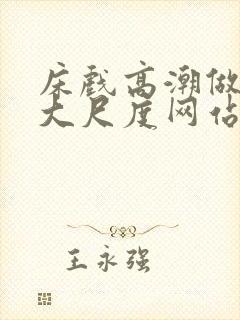 床戏高潮做
大尺度网佔
王永强